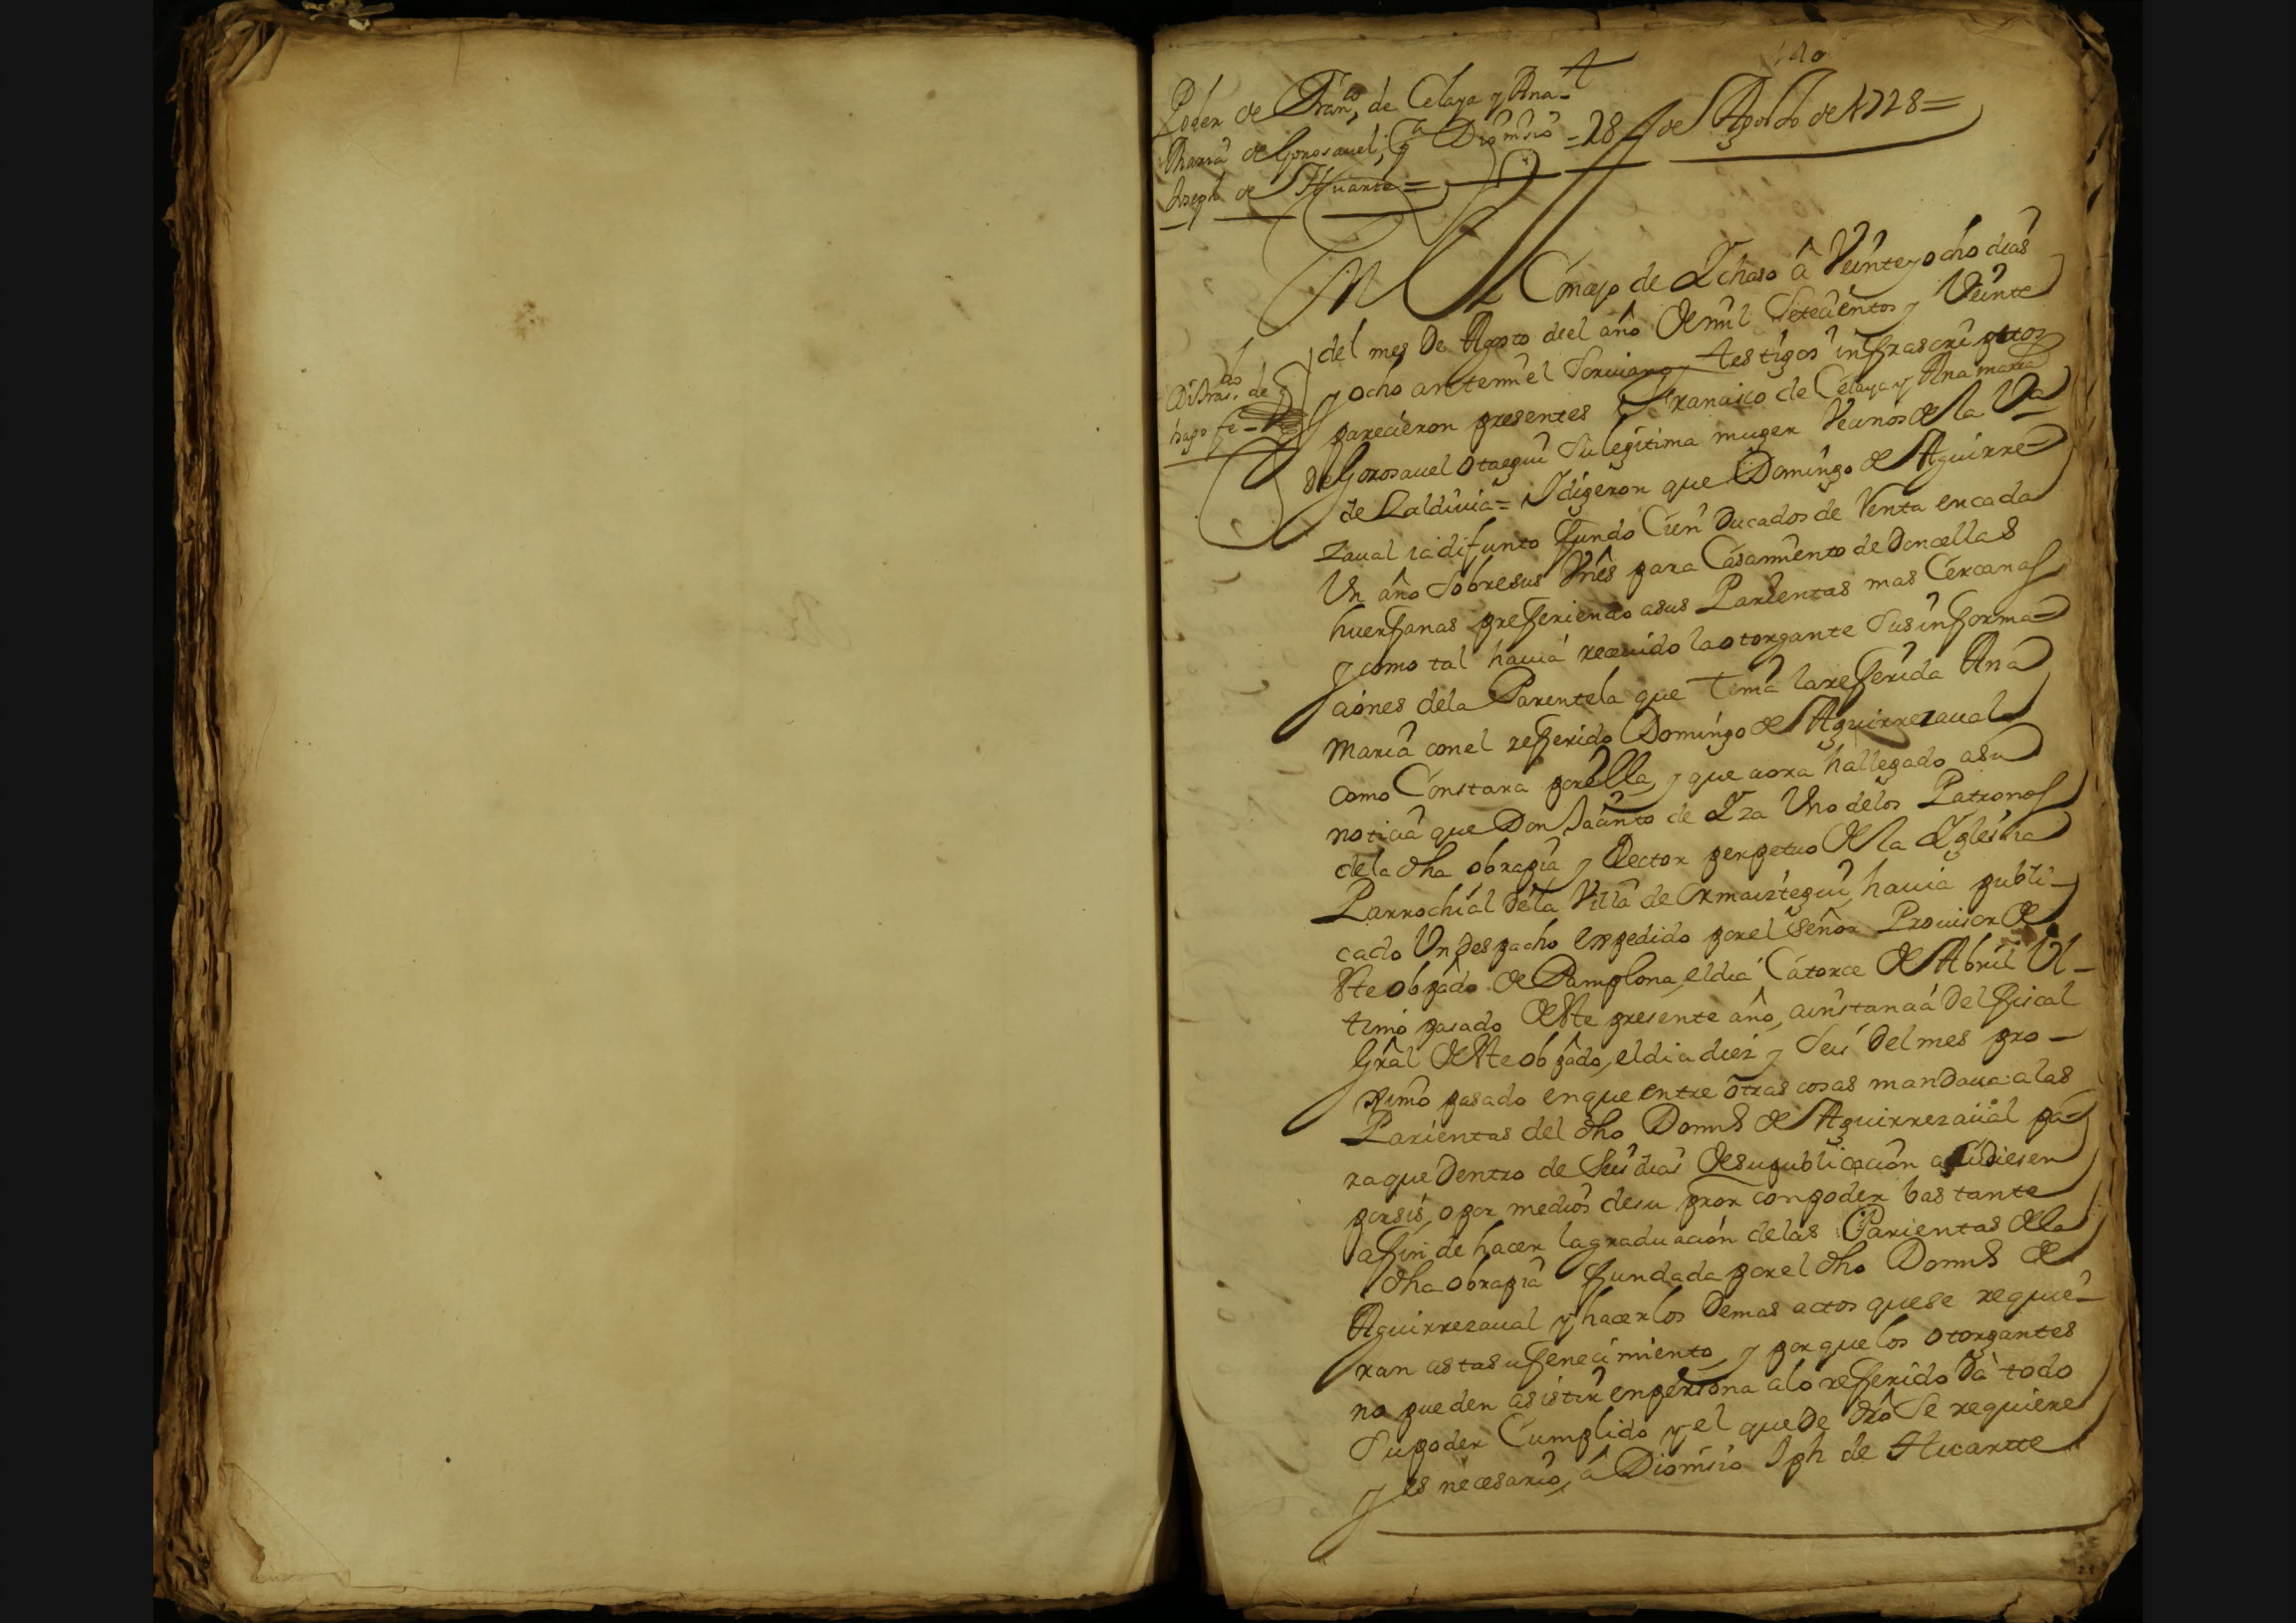 140
Poder de Franco, de Celaya y Ana
Maria de Gorosauel, a Dionisio - 28 de Agosto de 1728=
Joseph de Huarte=
En el Concejo de Ychaso â Veinte y ocho dias
del mes De Agosto del año de mil Setecientos y Veinte
y ocho ante mi el Scriuano, y testigos infrascriptos
parecieron presentes Francisco de Celaya y Ana maria
de Gorosauel Otaegui Su legitima muger Vecinos de la Va
de Zaldiuia= Y digeron que Domingo de Aguirre=
zaual ia difunto fundo Cien Ducados de Renta en cada
Un año Sobre sus Vnes para Casamiento de Doncellas
huerfanas prefferiendo a sus Parientas mas Cercanas
y como tal hauia receuido la otorgante Sus informa=
ciones de la Parentela que Tenia la refferida Ana
Maria con el refferido Domingo de Aguirrezaual
como Constara por ella, y que aora ha llegado a su
noticia que Don Jacinto de Yza Uno de los Patronos
de la dha obrapia y Rector perpetuo de la Yglesia
Parrochial de la Villa de Ormaiztegui, hauia publi-
cado Un despacho expedido por el Señor Prouisor de
Ste obpâdo de Pamplona, el dia Catorce de Abril Ul-
timo pasado deste presente año, a instancia del fiscal
Grâl deste obpâdo, el dia diez y Seis del mes pro-
ximo pasado en que entre otras cosas mandaua a las
Parientas del dho Domis de Aguirrezaual pa=
ra que Dentro de Seis dias de su publicacion acudiesen
por sis, o por medios de su pror con poder bastante
a fin de hacer la graduacion de las Parientas de la
dha obrapia fundada por el dho Domis de
Aguirrezaual y hacer los Demas actos que se requie-
ran astas u fenecimiento, y por que los otorgantes
no pueden asistir en persona a lo refferido Dâ todo
Su poder Cumplido y el que de dro Se requiere
y es necesario, â Dionisio Jph de Huartte